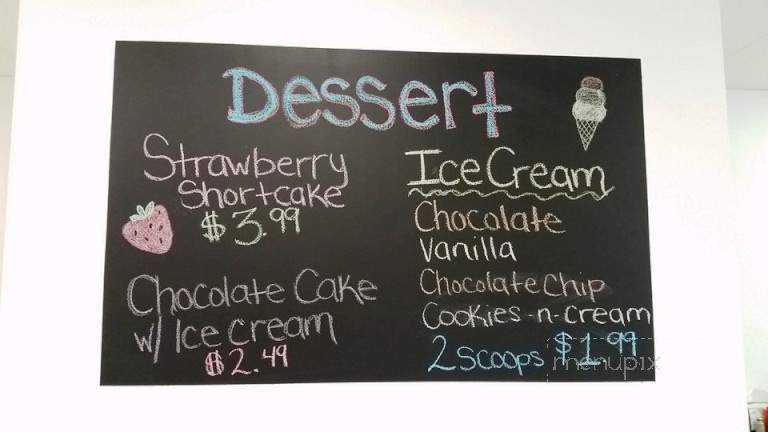 Dessert
Strawberry
Shortcake
$3.99
Chocolate Cake
w/ Ice cream
$2.49
Ice Cream
Chocolate
Vanilla
Chocolate Chip
Cookies-n-Cream
2 scoops $1.99
menupix